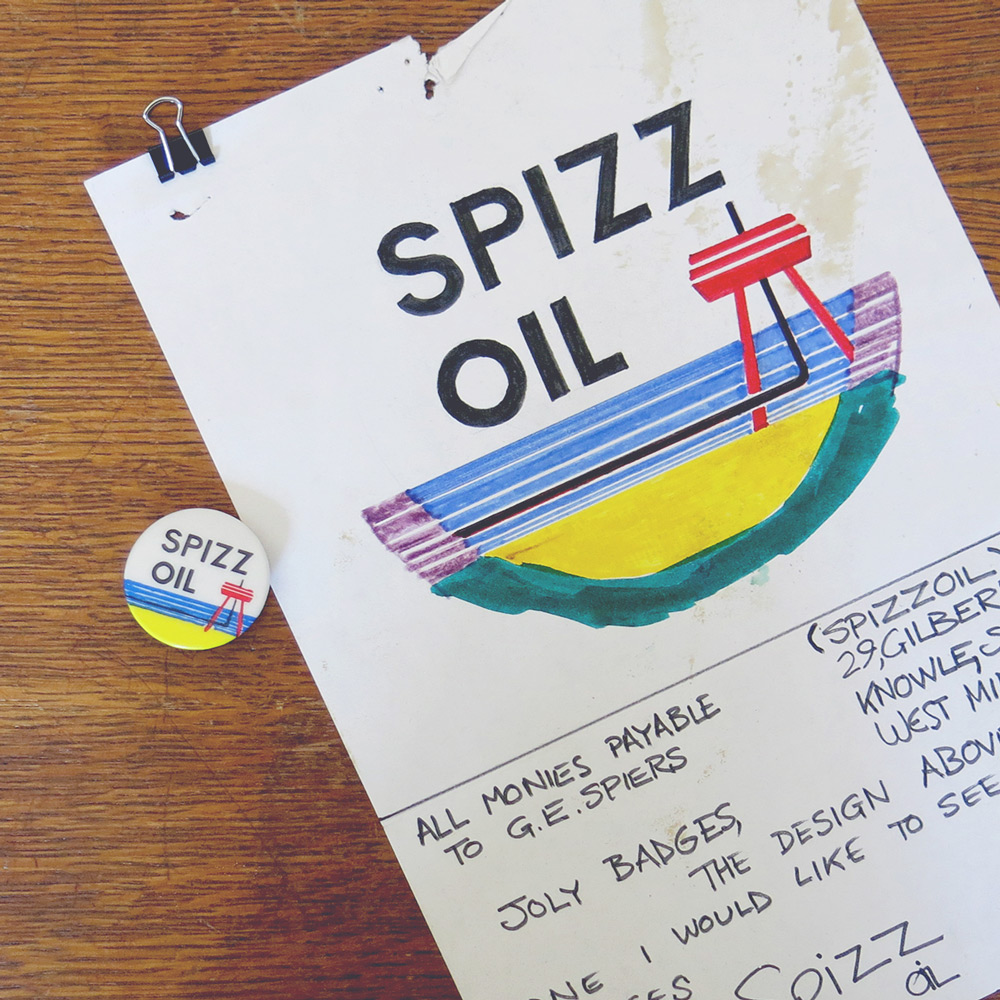 SPIZZ
OIL
SPIZZ
OIL
(SPIZZOIL,)
29, GILBER
KNOWLE, S
WEST MI
ALL MONIES PAYABLE
TO G.E. SPIERS
JOLY BADGES,
THE DESIGN ABOV
I WOULD LIKE TO SEE
Spizz
OIL